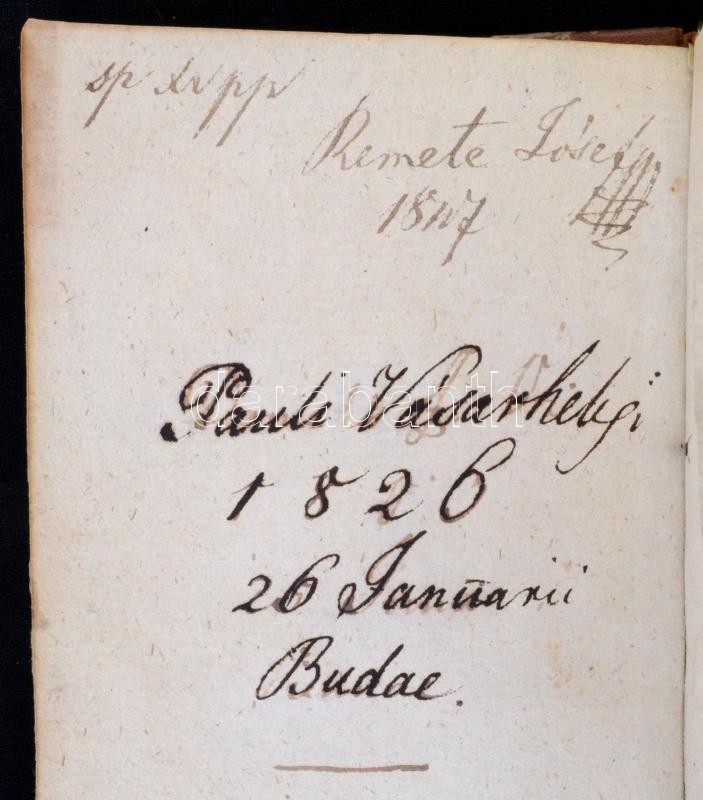 sp xr pp
Remete Jósef
1847
Pauli Vásárhelyi
1826
26 Januarii
Budae.
darabanth